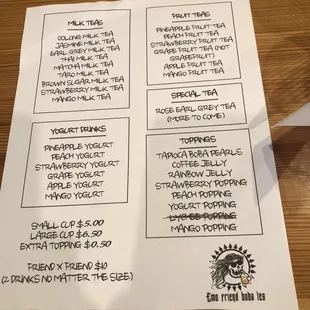 MILK TEAS
OOLONG MILK TEA
JASMINE MILK TEA
EARL GREY MILK TEA
THAI MILK TEA
MATCHA MILK TEA
TARO MILK TEA
BROWN SUGAR MILK TEA
STRAWBERRY MILK TEA
MANGO MILK TEA
FRUIT TEAS
PINEAPPLE FRUIT TEA
PEACH FRUIT TEA
STRAWBERRY FRUIT TEA
GRAPE FRUIT TEA (NOT
GRAPEFRUIT)
APPLE FRUIT TEA
MANGO FRUIT TEA
SPECIAL TEA
ROSE EARL GREY TEA
(MORE TO COME)
YOGURT DRINKS
PINEAPPLE YOGURT
PEACH YOGURT
STRAWBERRY YOGURT
GRAPE YOGURT
APPLE YOGURT
MANGO YOGURT
TOPPINGS
TAPIOCA BOBA PEARLS
COFFEE JELLY
RAINBOW JELLY
STRAWBERRY POPPING
PEACH POPPING
YOGURT POPPING
LYCHEE POPPING
MANGO POPPING
SMALL CUP $5.00
LARGE CUP $6.50
EXTRA TOPPING $0.50
FRIEND X FRIEND $10
(2 DRINKS NO MATTER THE SIZE)
Emo friend boba tea